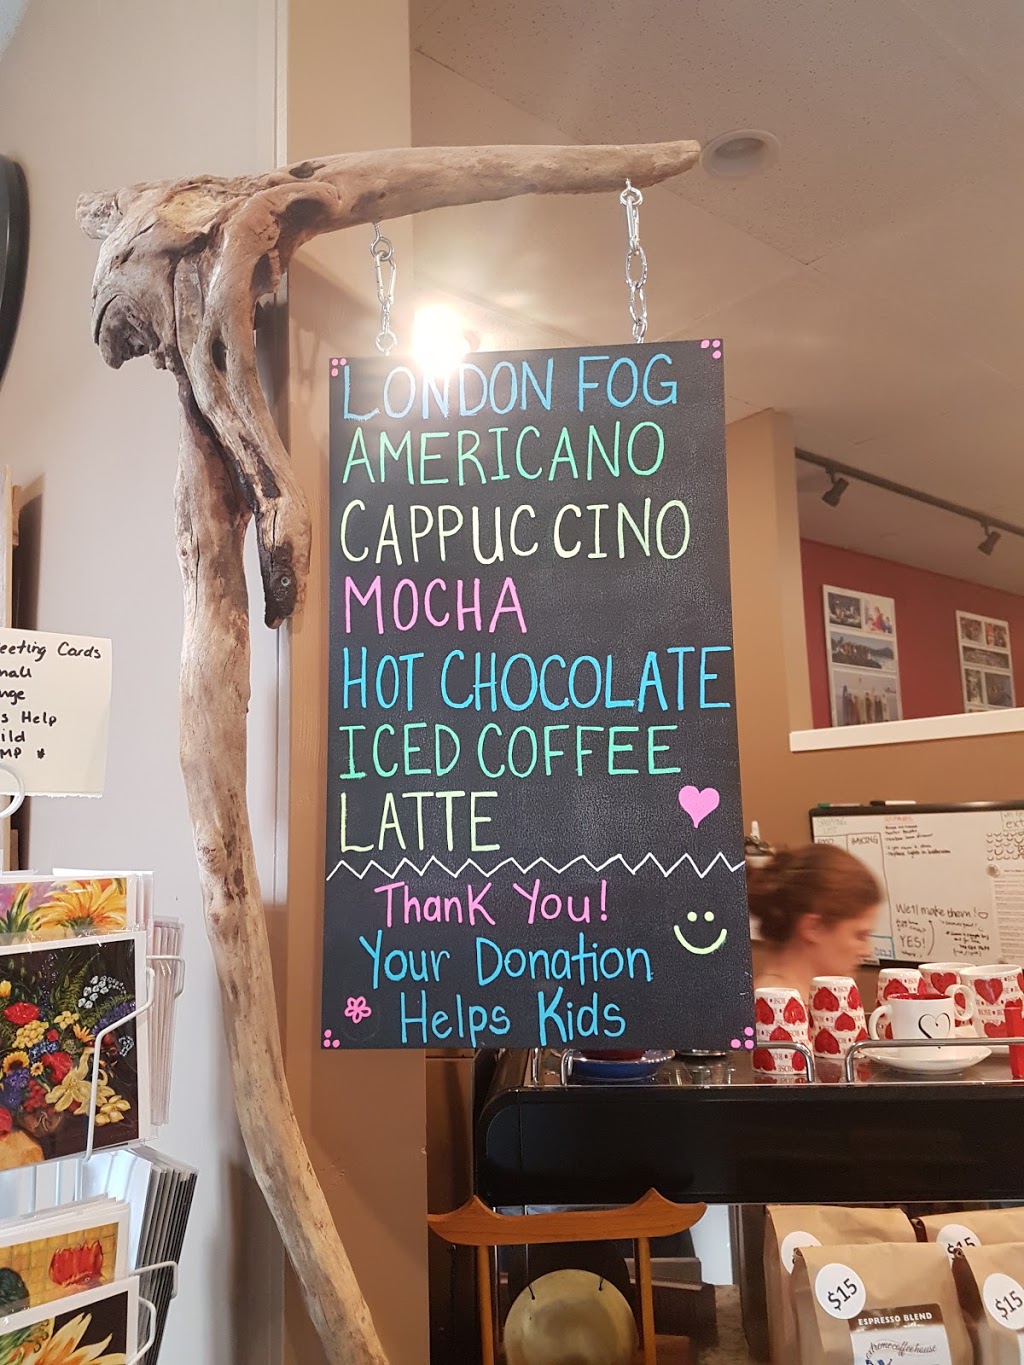 LONDON FOG
AMERICANO
CAPPUCCINO
MOCHA
HOT CHOCOLATE
ICED COFFEE
LATTE
Thank You!
Your Donation
Helps Kids
eeting Cards
mall
nge
s Help
ild
MP *
We'll make them!
YES!
$15
$15
$15
ESPRESSO BLEND